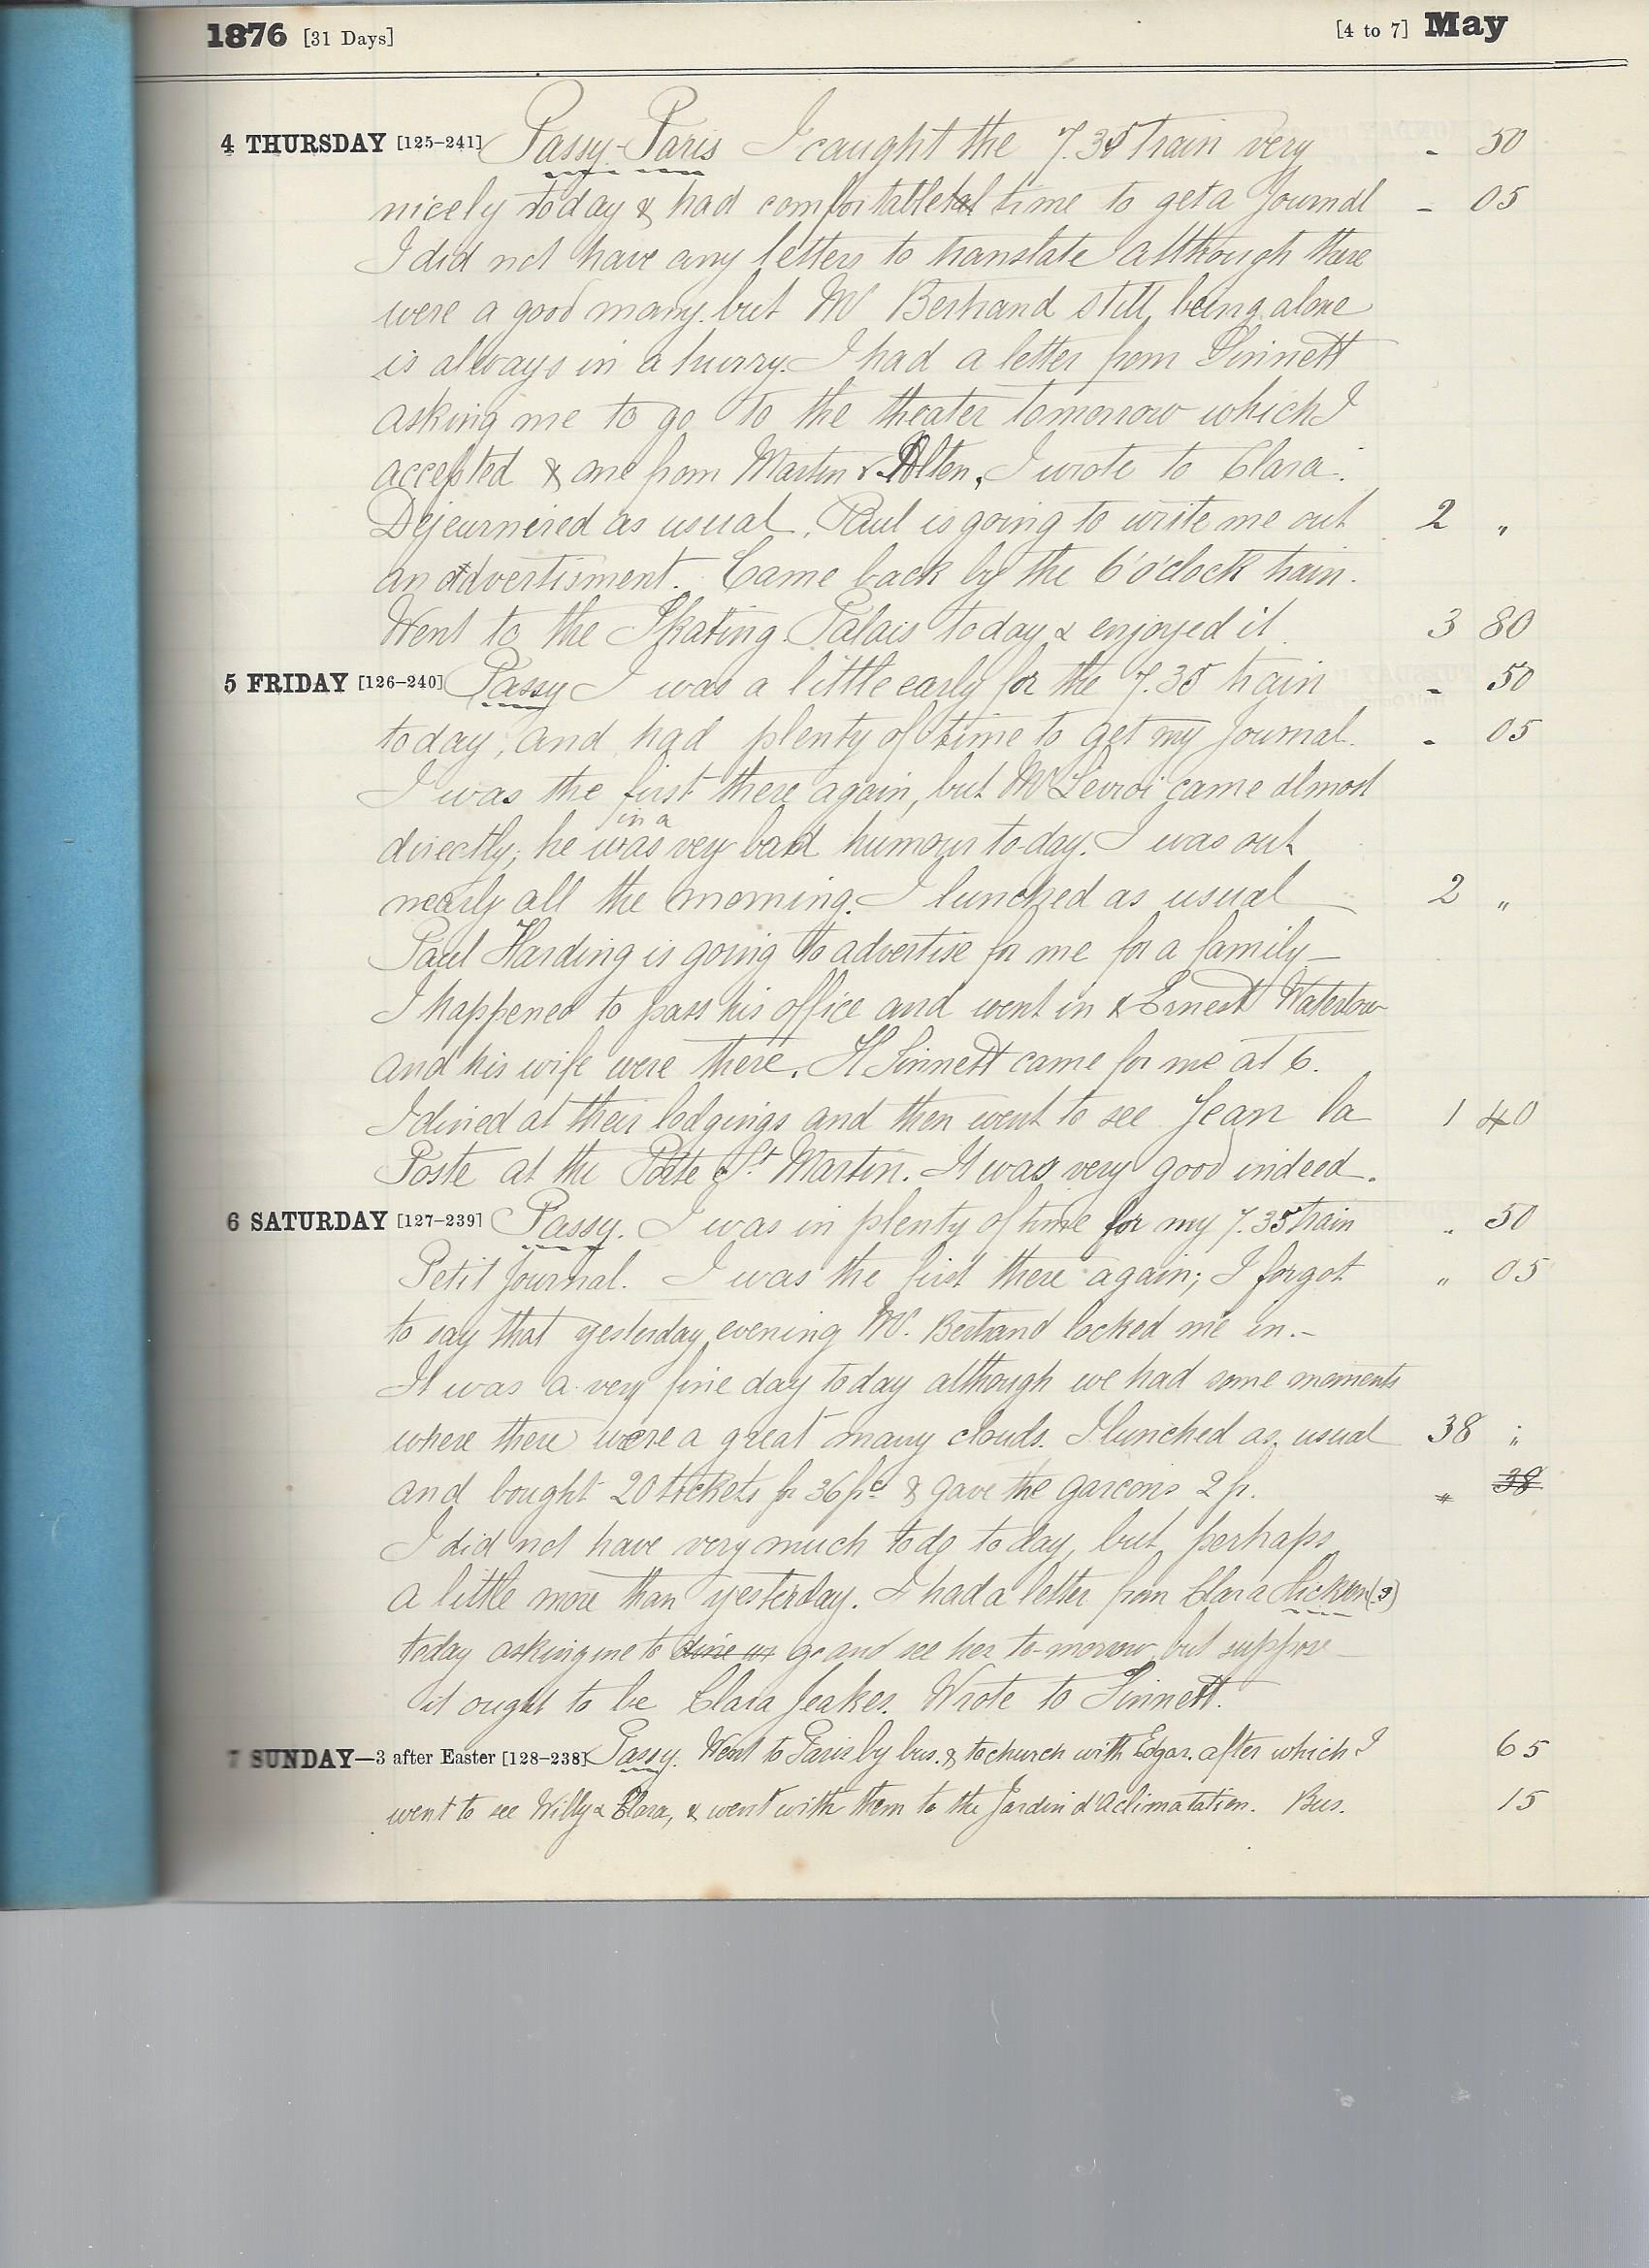 1876 [31 Days] [4 to 7] May
4 THURSDAY [125-241] Passy-Paris I caught the 7.35 train very - 50
nicely today & had comfortable time to get a Journal - 05
I did not have any letters to translate although there
were a good many but Mr Bertrand still being alone
is always in a hurry. I had a letter from Sinnett
asking me to go to the theater tomorrow which I
accepted & one from Martin & Olten, I wrote to Clara.
Dejeurnered as usual. Paul is going to write me out 2 "
an advertisment. Came back by the 6 o'clock train.
Went to the Skating Palais today & enjoyed it. 3 80
5 FRIDAY [126-240] Passy I was a little early for the 7.35 train - 50
today, and had plenty of time to get my Journal. - 05
I was the first there again, but Mr came almost
directly; he was in a very bad humour to-day. I was out
nearly all the morning. I lunched as usual 2 "
Paul Harding is going to advertise for me for a family—
I happened to pass his office and went in & Ernest Waterlow
and his wife were there. H Sinnett came for me at 6.
I dined at their lodgings and then went to see Jean la 1 40
Poste at the Porte St Martin. It was very good indeed.
6 SATURDAY [127-239] Passy. I was in plenty of time for my 7.35 train " 50
Petit Journal. I was the first there again; I forgot " 05
to say that yesterday evening Mr. Bertrand locked me in.—
It was a very fine day today although we had some moments
where there were a great many clouds. I lunched as usual 38 "
and bought 20 tickets for 36 fcs & gave the garcons 2 fr. " 38
I did not have very much to do today, but perhaps
a little more than yesterday. I had a letter from Clara Hickson (?)
today asking me to dine at go and see her to-morrow but suppose—
it ought to be Clara Jeakes. Wrote to Sinnett.
7 SUNDAY—3 after Easter [128-238] Passy. Went to Paris by bus. & to church with Edgar. after which I 65
went to see Willy & Clara, & went with them to the Jardin d'Aclimatation. Bus. 15